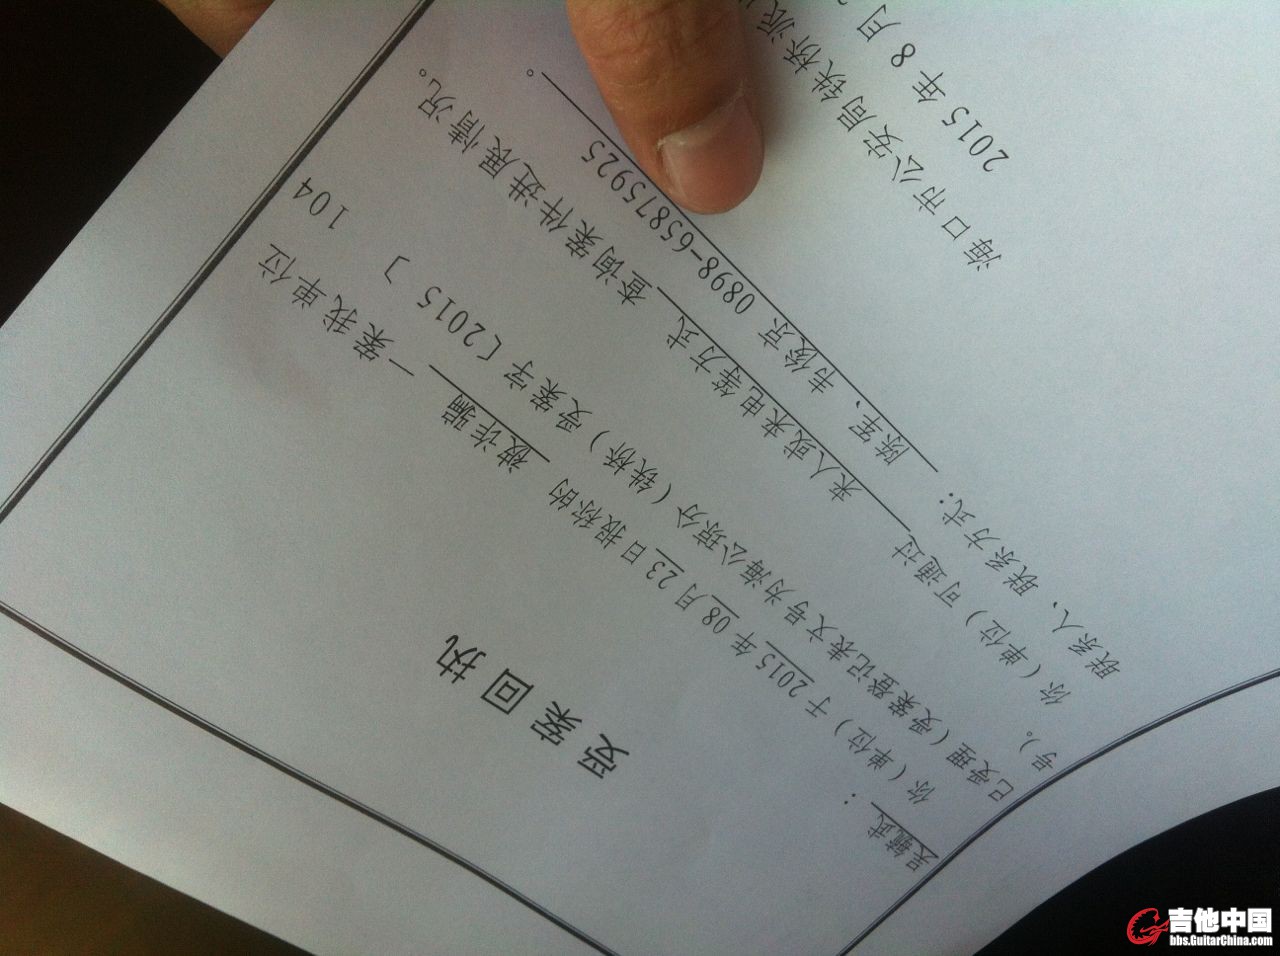 受案回执
吴毓武：
你（单位）于2015年08月23日报称的 被诈骗 一案我单位
已受理（受案登记表文号为海公琼分（铁桥）受案字〔2015〕104
号）。你（单位）可通过 来人或来电等方式 查询案件进展情况。
联系人、联系方式： 陈军、韦俊京 0898-65875925 。
海口市公安局铁桥派
2015年8月
吉他中国
bbs.GuitarChina.com